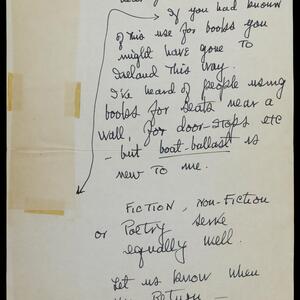 If you had known
of this use for books you
might have gone to
Ireland this way.
I've heard of people using
books for seats near a
wall, for door-stops etc
- but boat-ballast is
new to me.
FICTION, NON-FICTION
or Poetry serve
equally well.
Let us know when
you Return -